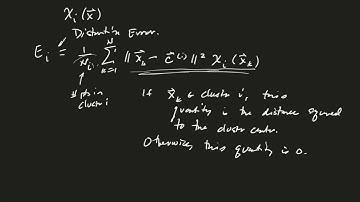 χᵢ(x⃗)
Distortion Error.
Eᵢ = 1/Nᵢ ∑ₖ₌₁ᴺ ‖x⃗ₖ − c⃗⁽ⁱ⁾‖² χᵢ(x⃗ₖ)
# pts in
cluster i
If x⃗ₖ ∈ cluster i, this
quantity is the distance squared
to the cluster center.
Otherwise this quantity is 0.